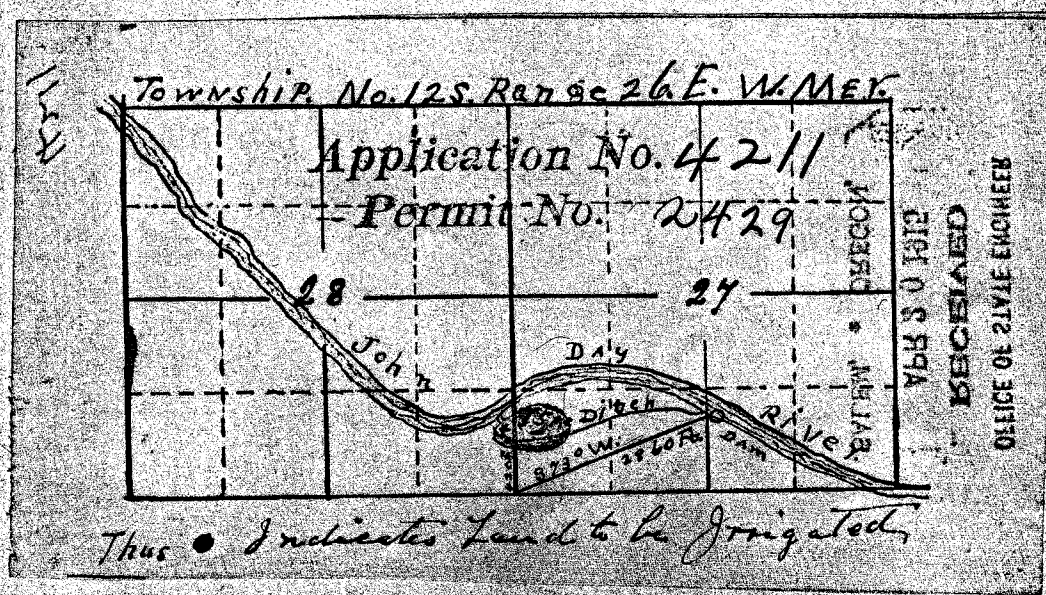 Township. No. 12S. Range 26.E. W. Mer.
Application No. 4211
Permit No. 2429
28
27
John
Day
River
Ditch
Dam
S73°W.
2860 Ft
Thus ● Indicates Land to be Irrigated
OFFICE OF STATE ENGINEER
RECEIVED
APR 20 1915
SALEM, * OREGON.